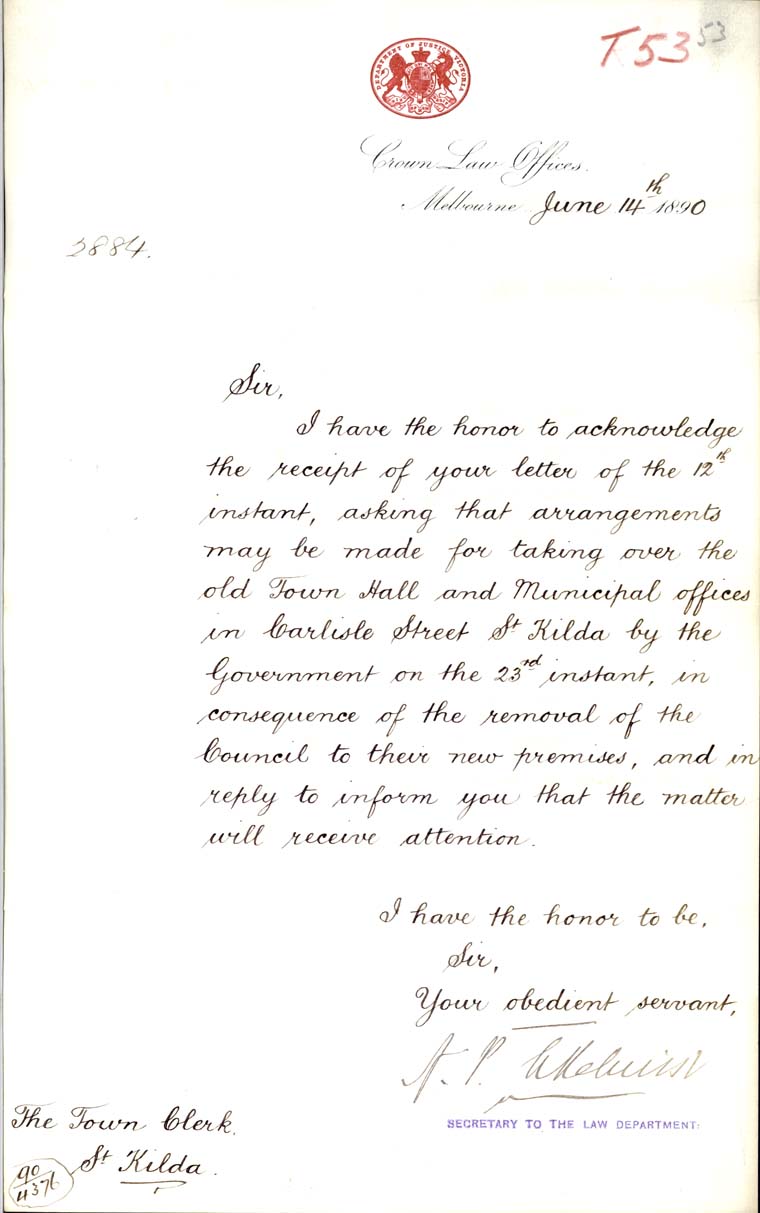 T 53
53
DEPARTMENT OF JUSTICE VICTORIA
Crown Law Offices.
Melbourne June 14th 1890
2884.
Sir,
I have the honor to acknowledge
the receipt of your letter of the 12th
instant, asking that arrangements
may be made for taking over the
old Town Hall and Municipal offices
in Carlisle Street St Kilda by the
Government on the 23rd instant, in
consequence of the removal of the
Council to their new premises, and in
reply to inform you that the matter
will receive attention.
I have the honor to be,
Sir,
Your obedient servant,
SECRETARY TO THE LAW DEPARTMENT.
The Town Clerk.
St Kilda.
90
4376